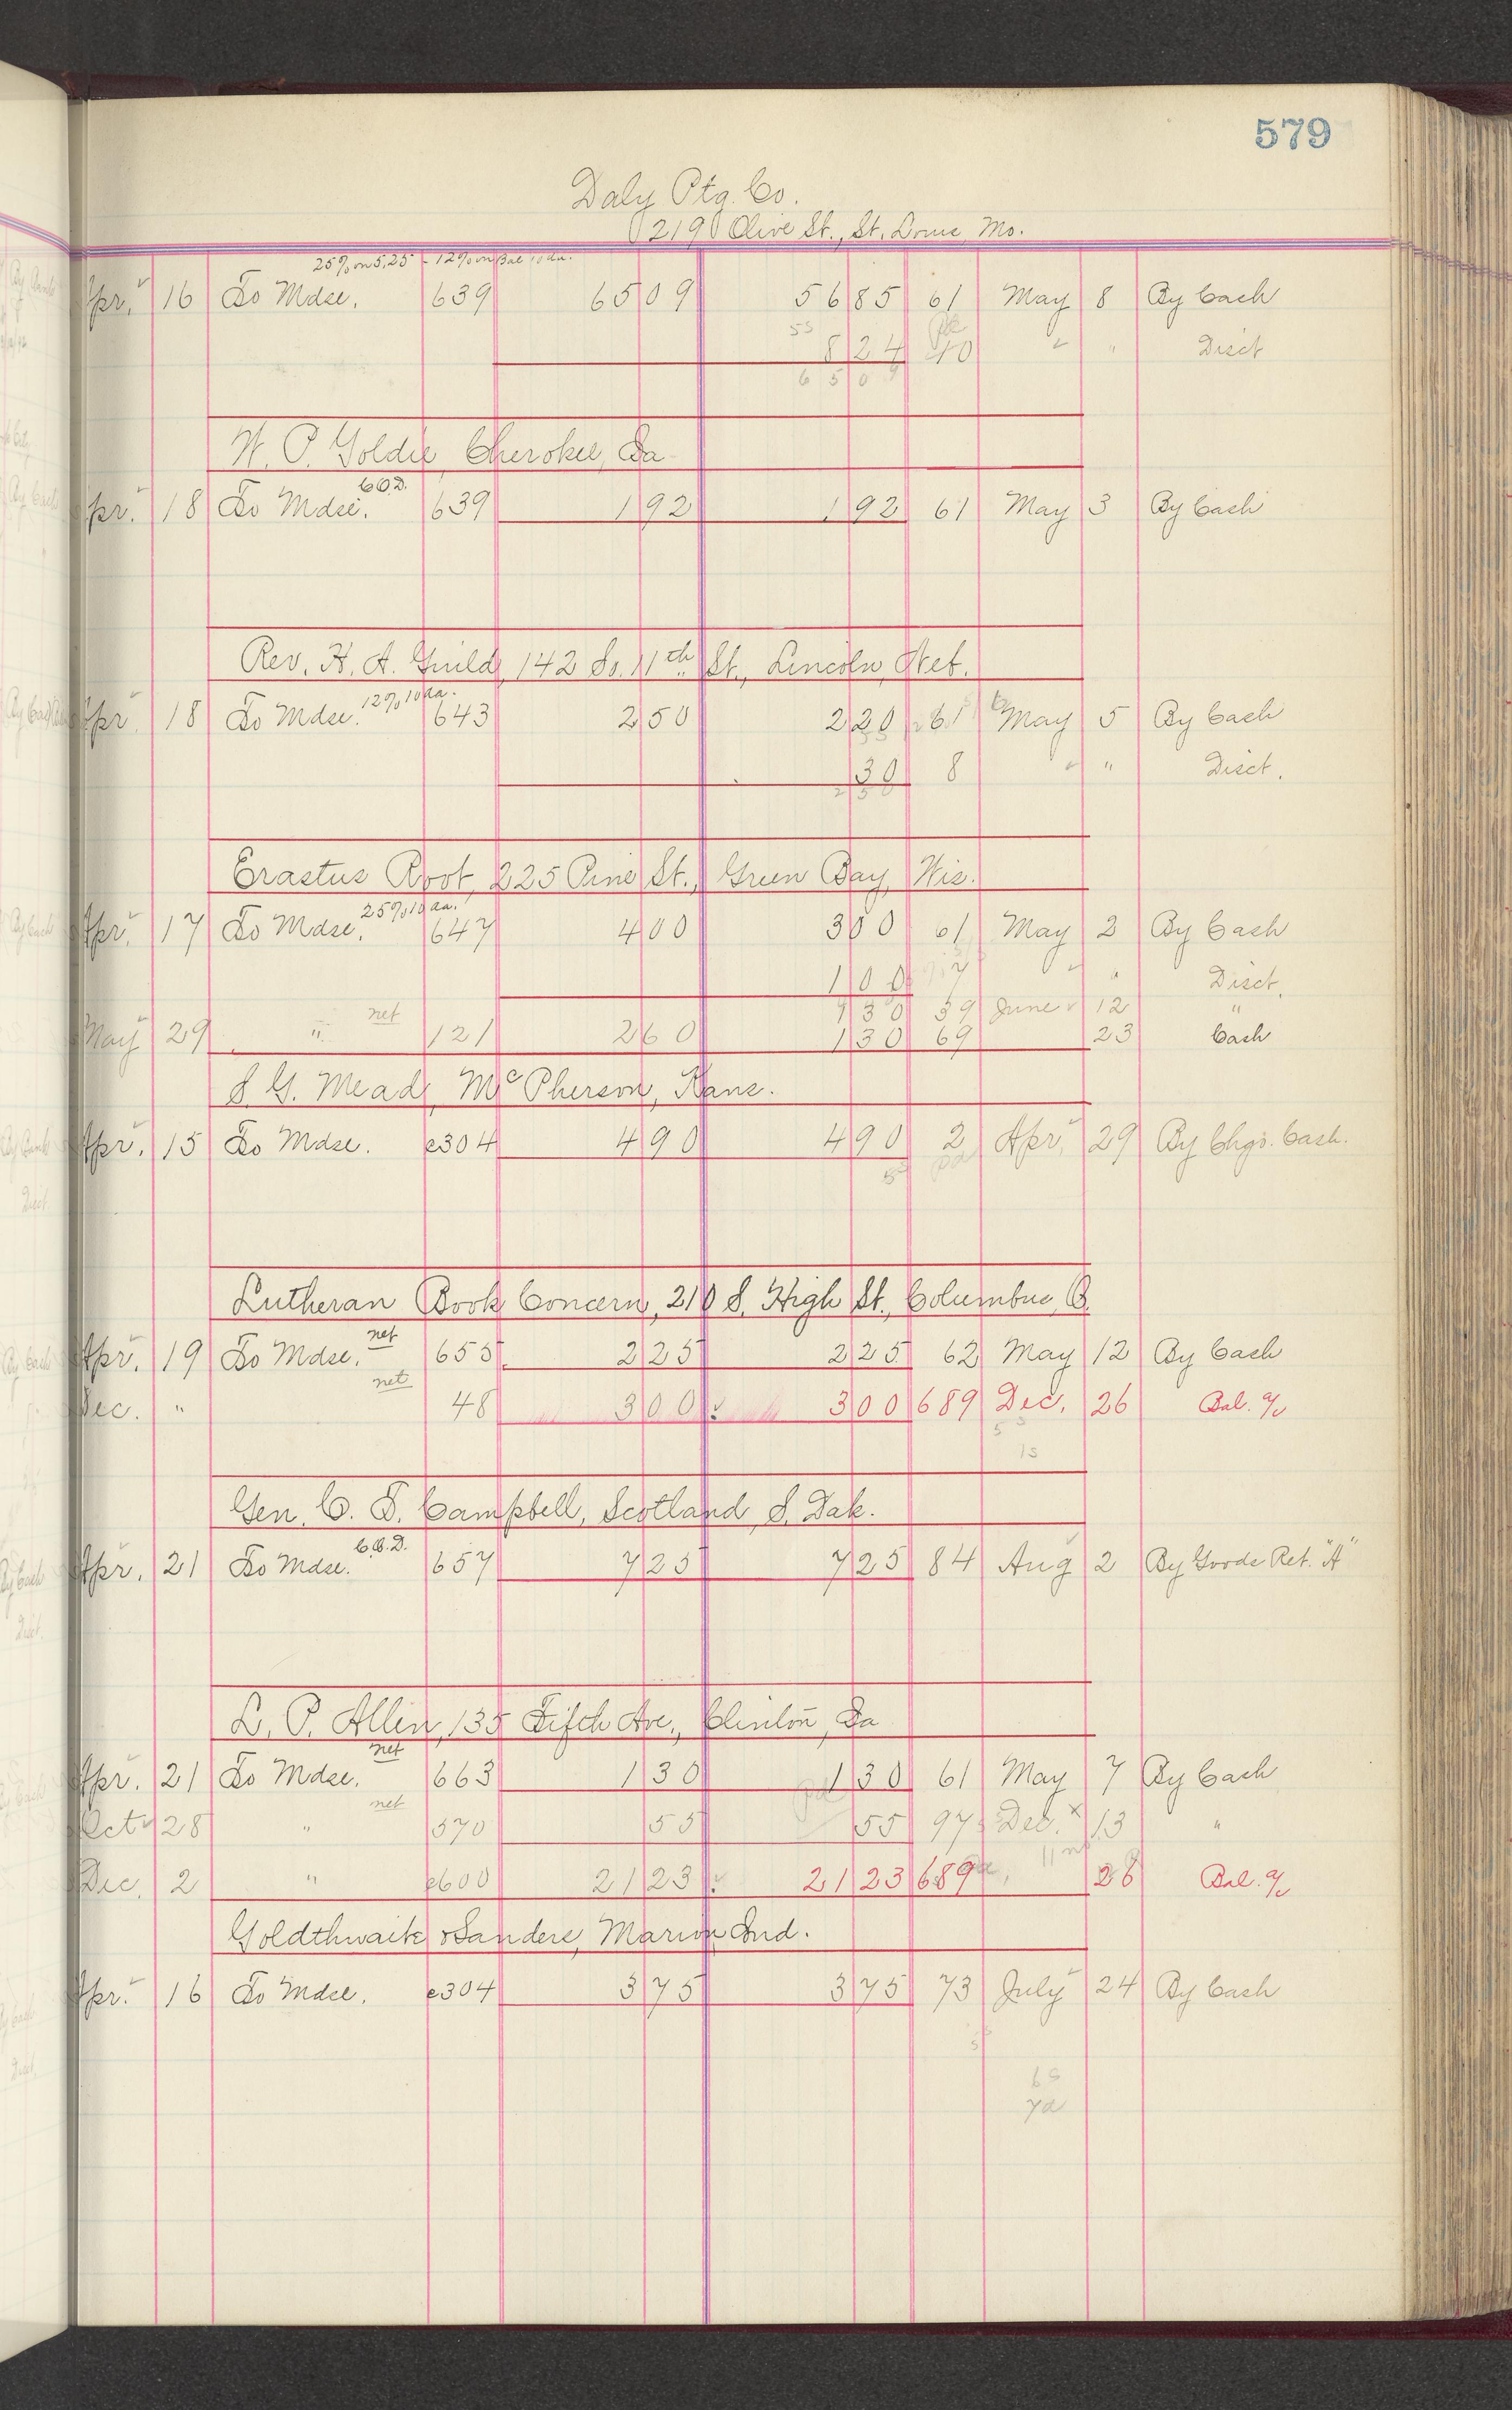 579
Daly Ptg. Co.
219 Olive St., St. Louis, Mo.
25% on 5.25 - 12% on Bal 10 da.
Apr. 16 To Mdse. 639 65 09 56 85 61 May 8 By Cash
8 24 40 " " Disct
6 5 0 9
W. P. Goldie, Cherokee, Ia
C.O.D.
Apr. 18 To Mdse. 639 1 92 1 92 61 May 3 By Cash
Rev. H. A. Guild, 142 So. 11th St., Lincoln, Neb.
12% 10 da.
Apr. 18 To Mdse. 643 2 50 2 20 61 May 5 By Cash
30 8 " " Disct.
2 50
Erastus Root, 225 Pine St., Green Bay, Wis.
25% 10 da.
Apr. 17 To Mdse. 647 4 00 3 00 61 May 2 By Cash
1 00 7 " " Disct.
1 30 39 June 12 "
net
May 29 " 121 2 60 1 30 69 23 Cash
S. G. Mead, McPherson, Kans.
Apr. 15 To Mdse. c304 4 90 4 90 2 Apr. 29 By Chgs. Cash.
Lutheran Book Concern, 210 S. High St., Columbus, O.
net
Apr. 19 To Mdse. 655 2 25 2 25 62 May 12 By Cash
net
Dec. " 48 3 00 3 00 689 Dec. 26 Bal. a/c
Gen. C. T. Campbell, Scotland, S. Dak.
C.O.D.
Apr. 21 To Mdse. 657 7 25 7 25 84 Aug 2 By Goods Ret. "A"
L. P. Allen, 135 Fifth Ave., Clinton, Ia
net
Apr. 21 To Mdse. 663 1 30 1 30 61 May 7 By Cash
net
Oct 28 " 370 55 55 97 Dec. 13 "
Dec. 2 " c600 21 23 21 23 689 26 Bal. a/c
Goldthwaite & Sanders, Marion, Ind.
Apr. 16 To Mdse. c304 3 75 3 75 73 July 24 By Cash